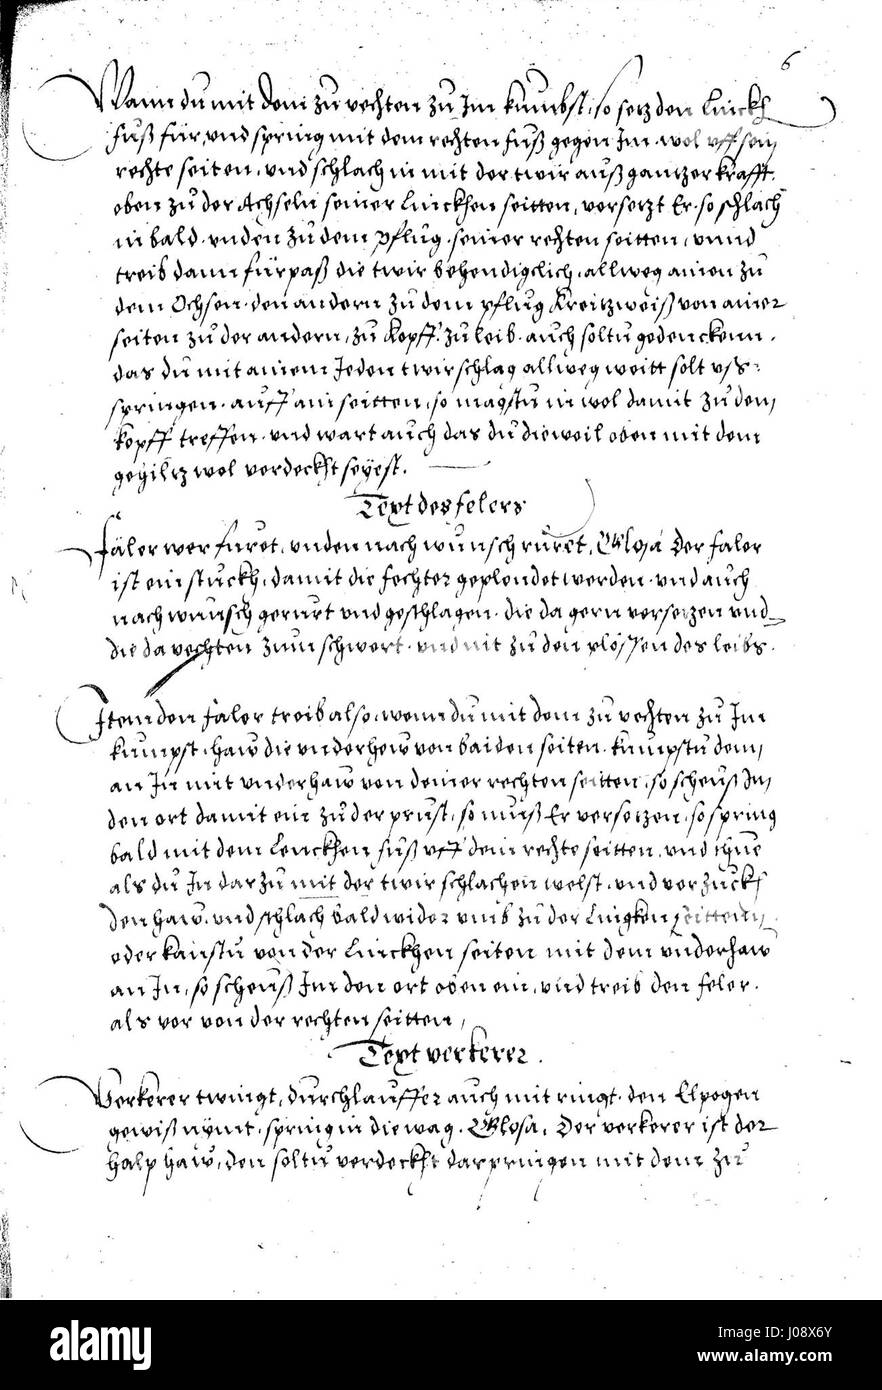 6
Wann du mit dem zu vechten zu Im kumbst, so setz den Linckh
fuß für, und spring mit dem rechten fuß gegen Im wol uff sein
rechte seiten, und schlach in mit der twir auß gantzer krafft.
oben zu der Achseln seiner Linckhen seitten, versetzt Er, so schlach
in bald unden zu dem pflug seiner rechten seitten, unnd
treib dann fürpaß die twir behendigclich, allweg ainen zu
dem Ochsen, den andern zu dem pflug Kreitzweiß von ainer
seiten zu der andern, zu Kopff, zu leib, auch soltu gedenckenn,
das du mit ainem Jeden twirschlag allweg weitt solt uss=
springen auff ain seitten, so magstu in wol damit zu dem
kopff treffen, und wart auch das du dieweil oben mit dem
gehiltz wol verdeckht seyest.
Text des felers
Fäler wer furet, unden nach wunsch ruret, Glosa Der faler
ist ein stuckh, damit die fechter geplendet werden, und auch
nach wunsch gerurt und geschlagen, die da gern versetzen und
die da vechten zum schwert, und nit zu den plössen des leibs.
Item den faler treib also, wenn du mit dem zu vechten zu Im
kumpst, haw die underhew von baiden seiten, kumpstu dem,
an In mit underhaw von deiner rechten seitten, so scheuß In,
den ort damit ein zu der prust, so muß Er versetzen, so spring
bald mit dem Lenckhen fuß uff dein rechte seitten, und thue
als du In darzu mit der twir schlachen welst, und verzuckh
den haw, und schlach bald wider umb zu der Lingken seittenn,
oder kanstu von der Linckhen seiten mit dem underhaw
an In, so scheuß Im den ort oben ein, und treib den feler,
als vor von der rechten seitten,
Text verkerer.
Verkerer twingt, durchlauffer auch mit ringt, den Elpogen
gewiß nymt, spring in die wag. Glosa, Der verkerer ist der
halp haw, den soltu verdeckht dar pringen mit dem zu
alamy
Image ID: J08X6Y
www.alamy.com